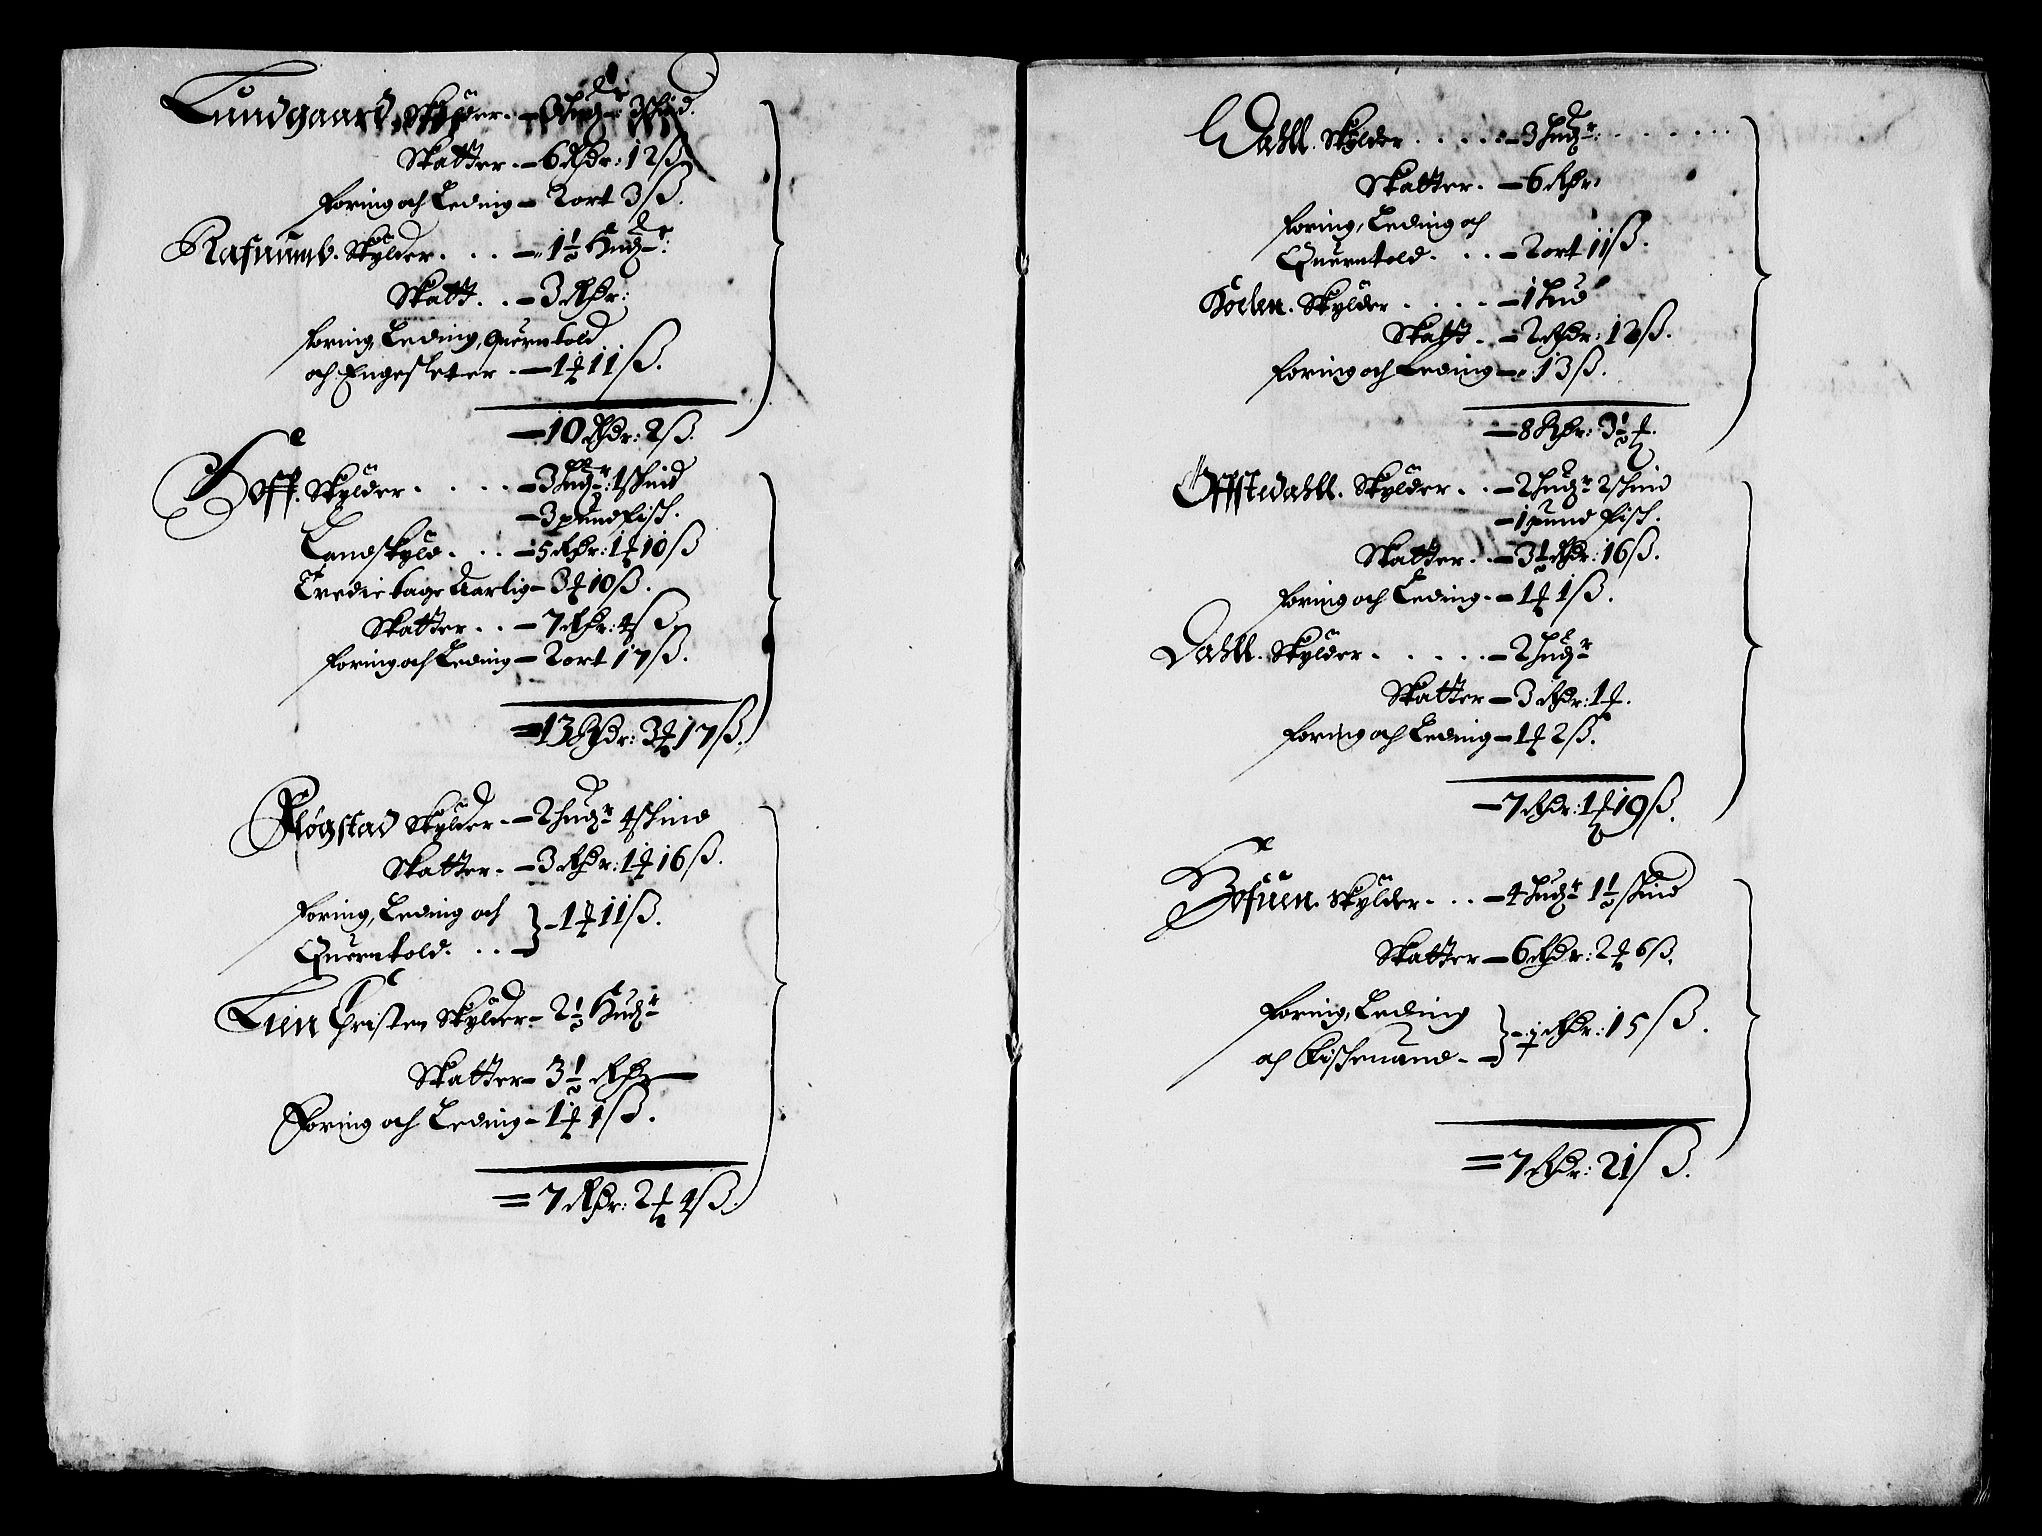 Lundgaard, Skylder. – 3 hudr 3 skind.
Skatter. – 6 Rdr: 12 ß
foring och Leding – 2 ort 3 ß.
Rafnumb. Skylder. . . . – 1½ Hudr:
Skatt. . . – 3 Rdr:
foring, Leding, querntold
och Engesleter. – 1 ort 11 ß.
– 10 Rdr: 2 ß.
Hoff. Skylder. . . . . – 3 hudr: 4 skind
– 3 pund fisch.
Landskyld. . . – 5 Rdr: 1 ort 10 ß
Tredie tage Aarlig – 3 ort 10 ß.
Skatter. . . – 7 Rdr: 4 ß
foring och Leding – 2 ort 17 ß.
– 13 Rdr: 3 ort 17 ß.
Fløgstad Skylder. – 2 hudr 4 skind
Skatter. – 3 Rdr: 1 ort 16 ß.
foring, Leding och
Querntold. . . } – 1 ort 11 ß.
Lien Christen Skylder – 2½ Hudr
Skatter – 3½ Rdr
Foring och Leding – 1 ort 1 ß.
= 7 Rdr: 2 ort 4 ß.
Dahll. Skylder . . . . . – 3 hudr: . . . . .
Skatter. – 6 Rdr
foring, Leding och
Querntold. . . – 2 ort 11 ß.
Hoelen. Skylder . . . . – 1 hud
Skatt. – 2 Rdr: 12 ß.
foring och Leding – 13 ß.
– 8 Rdr: 3½ ort.
Offstedahll. Skylder . . – 2 hudr 2 skind
– 1 pund fisch.
Skatter. . – 3½ Rdr: 16 ß.
foring och Leding. – 1 ort 1 ß.
Dahll. Skylder . . . . . – 2 hudr
Skatter – 3 Rdr: 1 ort.
foring och Leding – 1 ort 2 ß.
– 7 Rdr: 1 ort 19 ß.
Hofuen. Skylder. . . – 4 hudr 1½ skind
Skatter – 6 Rdr: 2 ort 6 ß.
foring, Leding
och Fischeuand. – } – ½ Rdr: 15 ß.
= 7 Rdr: 21 ß.